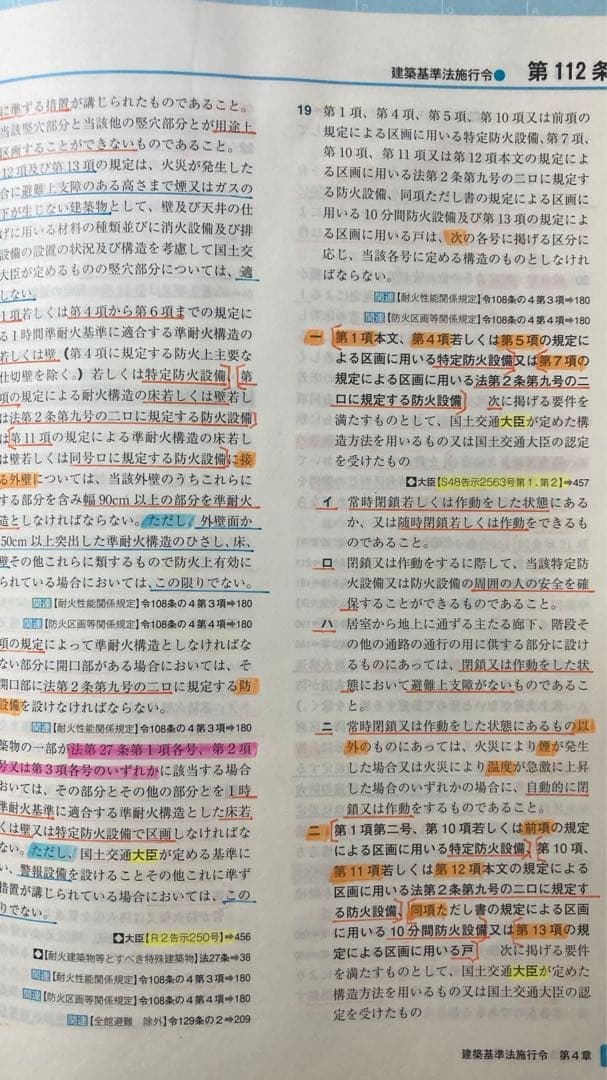 建築基準法施行令● 第112条
に準ずる措置が講じられたものであること。
当該竪穴部分と当該他の竪穴部分とが用途上
区画することができないものであること。
12項及び第13項の規定は、火災が発生した
合に避難上支障のある高さまで煙又はガスの
下が生じない建築物として、壁及び天井の仕
げに用いる材料の種類並びに消火設備及び排
設備の設置の状況及び構造を考慮して国土交
大臣が定めるものの竪穴部分については、適
しない。
1項若しくは第4項から第6項までの規定によ
る1時間準耐火基準に適合する準耐火構造の
若しくは壁(第4項に規定する防火上主要な
仕切壁を除く。)若しくは特定防火設備、第
項の規定による耐火構造の床若しくは壁若し
は法第2条第九号の二ロに規定する防火設備
は第11項の規定による準耐火構造の床若し
は壁若しくは同号ロに規定する防火設備に接
る外壁については、当該外壁のうちこれらに
する部分を含み幅90cm以上の部分を準耐火
造としなければならない。ただし、外壁面か
50cm以上突出した準耐火構造のひさし、床、
壁その他これらに類するもので防火上有効に
られている場合においては、この限りでない。
関連【耐火性能関係規定】令108条の4第3項➡180
関連【防火区画等関係規定】令108条の4第4項➡180
項の規定によって準耐火構造としなければな
ない部分に開口部がある場合においては、そ
開口部に法第2条第九号の二ロに規定する防
設備を設けなければならない。
関連【耐火性能関係規定】令108条の4第3項➡180
築物の一部が法第27条第1項各号、第2項
号又は第3項各号のいずれかに該当する場合
おいては、その部分とその他の部分とを1時
準耐火基準に適合する準耐火構造とした床若
くは壁又は特定防火設備で区画しなければな
ない。ただし、国土交通大臣が定める基準に
い、警報設備を設けることその他これに準ず
措置が講じられている場合においては、この
りでない。
◆大臣【R2告示250号】➡456
◆【耐火建築物等とすべき特殊建築物】法27条➡38
関連【耐火性能関係規定】令108条の4第3項➡180
関連【防火区画等関係規定】令108条の4第4項➡180
関連【全館避難 除外】令129条の2➡209
19 第1項、第4項、第5項、第10項又は前項の
規定による区画に用いる特定防火設備、第7項、
第10項、第11項又は第12項本文の規定によ
る区画に用いる法第2条第九号の二ロに規定す
る防火設備、同項ただし書の規定による区画に
用いる10分間防火設備及び第13項の規定によ
る区画に用いる戸は、次の各号に掲げる区分に
応じ、当該各号に定める構造のものとしなけれ
ばならない。
関連【耐火性能関係規定】令108条の4第3項➡180
関連【防火区画等関係規定】令108条の4第4項➡180
一 第1項本文、第4項若しくは第5項の規定に
よる区画に用いる特定防火設備又は第7項の
規定による区画に用いる法第2条第九号の二
ロに規定する防火設備 次に掲げる要件を
満たすものとして、国土交通大臣が定めた構
造方法を用いるもの又は国土交通大臣の認定
を受けたもの
◆大臣【S48告示2563号第1、第2】➡457
イ 常時閉鎖若しくは作動をした状態にある
か、又は随時閉鎖若しくは作動をできるも
のであること。
ロ 閉鎖又は作動をするに際して、当該特定防
火設備又は防火設備の周囲の人の安全を確
保することができるものであること。
ハ 居室から地上に通ずる主たる廊下、階段そ
の他の通路の通行の用に供する部分に設け
るものにあっては、閉鎖又は作動をした状
態において避難上支障がないものであるこ
と。
ニ 常時閉鎖又は作動をした状態にあるもの以
外のものにあっては、火災により煙が発生
した場合又は火災により温度が急激に上昇
した場合のいずれかの場合に、自動的に閉
鎖又は作動をするものであること。
二 第1項第二号、第10項若しくは前項の規定
による区画に用いる特定防火設備、第10項、
第11項若しくは第12項本文の規定による区
画に用いる法第2条第九号の二ロに規定す
る防火設備、同項ただし書の規定による区画
に用いる10分間防火設備又は第13項の規定
による区画に用いる戸 次に掲げる要件を
満たすものとして、国土交通大臣が定めた
構造方法を用いるもの又は国土交通大臣の認
定を受けたもの
建築基準法施行令 第4章